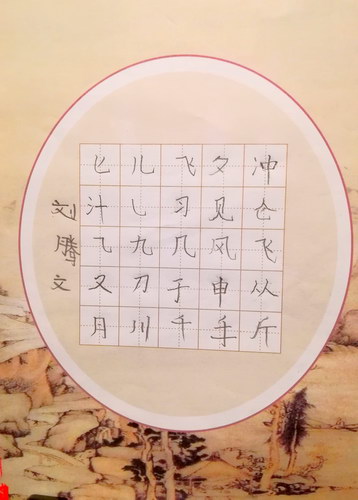 匕儿飞夕冲
汁乚习见仓
乁九几风飞
又刀于申从
月川千手斤
刘腾文